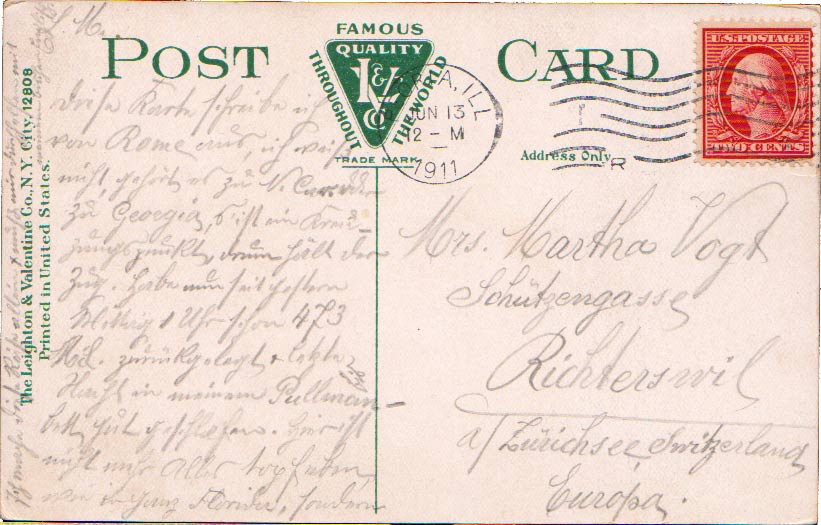 POST CARD
FAMOUS
QUALITY
THROUGHOUT
THE WORLD
L & V Co
TRADE MARK
U.S. POSTAGE
TWO CENTS
PEORIA, ILL
JUN 13
12 - M
1911
R
Address Only
The Leighton & Valentine Co., N.Y. City. 12808
Printed in United States.
L. M.
Diese Karte schreibe ich
von Rome aus, ich weiß
nicht, gehört es zu N. Car. oder
zu Georgia, s'ist ein Kreu-
zungspunkt, drum hält der
Zug. Habe nun seit gestern
Mittag 1 Uhr schon 473
Mil. zurückgelegt & letzte
Nacht in meinem Pullman-
bett gut geschlafen. Hier ist
nicht mehr Alles topfeben,
wie in ganz Florida, sondern
Ich mache diese Reise allein
Mrs. Martha Vogt
Schützengasse
Richterswil
a/Zürichsee, Switzerland
Europa.